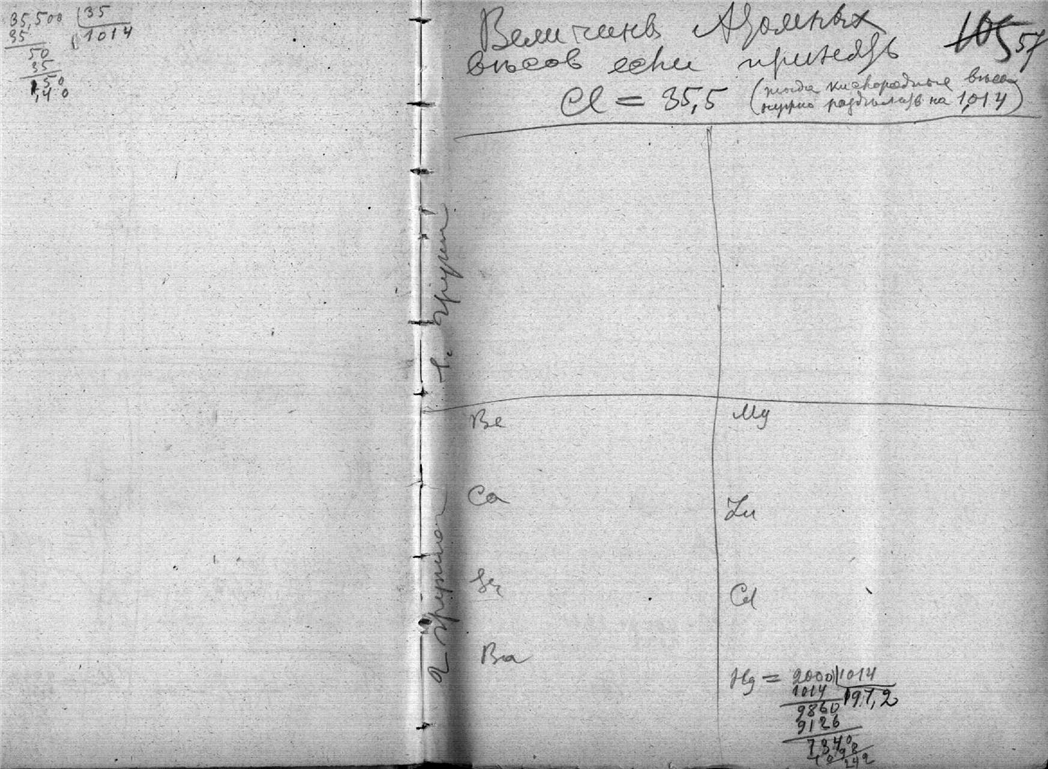 35,500 | 35
35 1014
50
35
150
140
Величины Атомных
вѣсов если принять
105 57
Cl = 35,5 (тогда кислородные вѣса
нужно раздѣлять на 1,014)
1. групп
2 группа
Be
Mg
Ca
Zn
Sr
Cd
Ba
Hg = 2000 | 1014
1014 197,2
9860
9126
7340